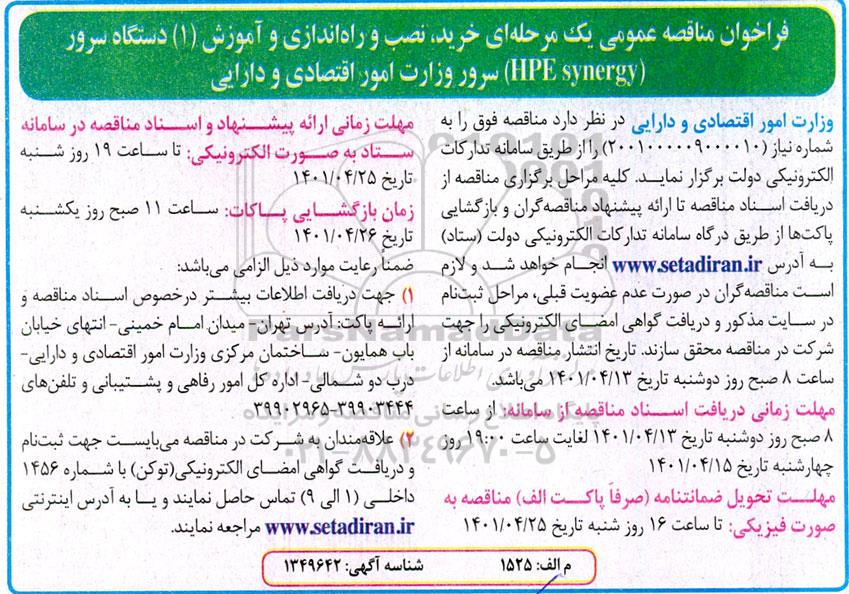 فراخوان مناقصه عمومی یک مرحله‌ای خرید، نصب و راه‌اندازی و آموزش (۱) دستگاه سرور
(HPE synergy) سرور وزارت امور اقتصادی و دارایی
وزارت امور اقتصادی و دارایی در نظر دارد مناقصه فوق را به
شماره نیاز (۲۰۰۱۰۰۰۰۰۹۰۰۰۰۱۰) را از طریق سامانه تدارکات
الکترونیکی دولت برگزار نمایـد. کلیه مراحل برگزاری مناقصه از
دریافت اسناد مناقصه تا ارائه پیشنهاد مناقصه‌گران و بازگشایی
پاکت‌ها از طریق درگاه سامانه تدارکات الکترونیکی دولت (ستاد)
بـه آدرس www.setadiran.ir انجـام خواهد شـد و لازم
است مناقصه‌گران در صورت عدم عضویت قبلی، مراحل ثبت‌نام
در سـایت مذکور و دریافت گواهی امضـای الکترونیکی را جهت
شرکت در مناقصه محقق سازند. تاریخ انتشار مناقصه در سامانه از
ساعت ۸ صبح روز دوشنبه تاریخ ۱۴۰۱/۰۴/۱۳ می‌باشد.
مهلت زمانی دریافت اسـناد مناقصه از سامانه: از ساعت
۸ صبح روز دوشنبه تاریخ ۱۴۰۱/۰۴/۱۳ لغایت ساعت ۱۹:۰۰ روز
چهارشنبه تاریخ ۱۴۰۱/۰۴/۱۵
مهلـت تحویل ضمانتنامه (صرفاً پاکـت الف) مناقصه به
صورت فیزیکی: تا ساعت ۱۶ روز شنبه تاریخ ۱۴۰۱/۰۴/۲۵
مهلت زمانی ارائه پیشـنهاد و اسـناد مناقصه در سامانه
سـتاد به صـورت الکترونیکی: تا ساعت ۱۹ روز شنبه
تاریخ ۱۴۰۱/۰۴/۲۵
زمان بازگشـایی پـاکات: ساعت ۱۱ صبح روز یکشنبه
تاریخ ۱۴۰۱/۰۴/۲۶
ضمناً رعایت موارد ذیل الزامی می‌باشد:
۱) جهت دریافت اطلاعات بیشتر درخصوص اسناد مناقصه و
ارائـه پاکت: آدرس تهران- میدان امـام خمینی- انتهای خیابان
باب همایون- ساختمان مرکزی وزارت امور اقتصادی و دارایی-
درب دو شمالی- اداره کل امور رفاهی و پشتیبانی و تلفن‌های
۳۹۹۰۲۹۶۵-۳۹۹۰۳۴۴۴
۲) علاقه‌مندان به شـرکت در مناقصه می‌بایست جهت ثبت‌نام
و دریافـت گواهی امضـای الکترونیکی(توکن) با شـماره ۱۴۵۶
داخلـی (۱ الی ۹) تماس حاصل نمایند و یـا به آدرس اینترنتی
www.setadiran.ir مراجعه نمایند.
م الف: ۱۵۲۵ شناسه آگهی: ۱۳۴۹۶۴۲
ParsNamadData
پایگاه اطلاع رسانی مناقصه و مزایده
۰۲۱-۸۸۳۴۹۶۷۰-۵